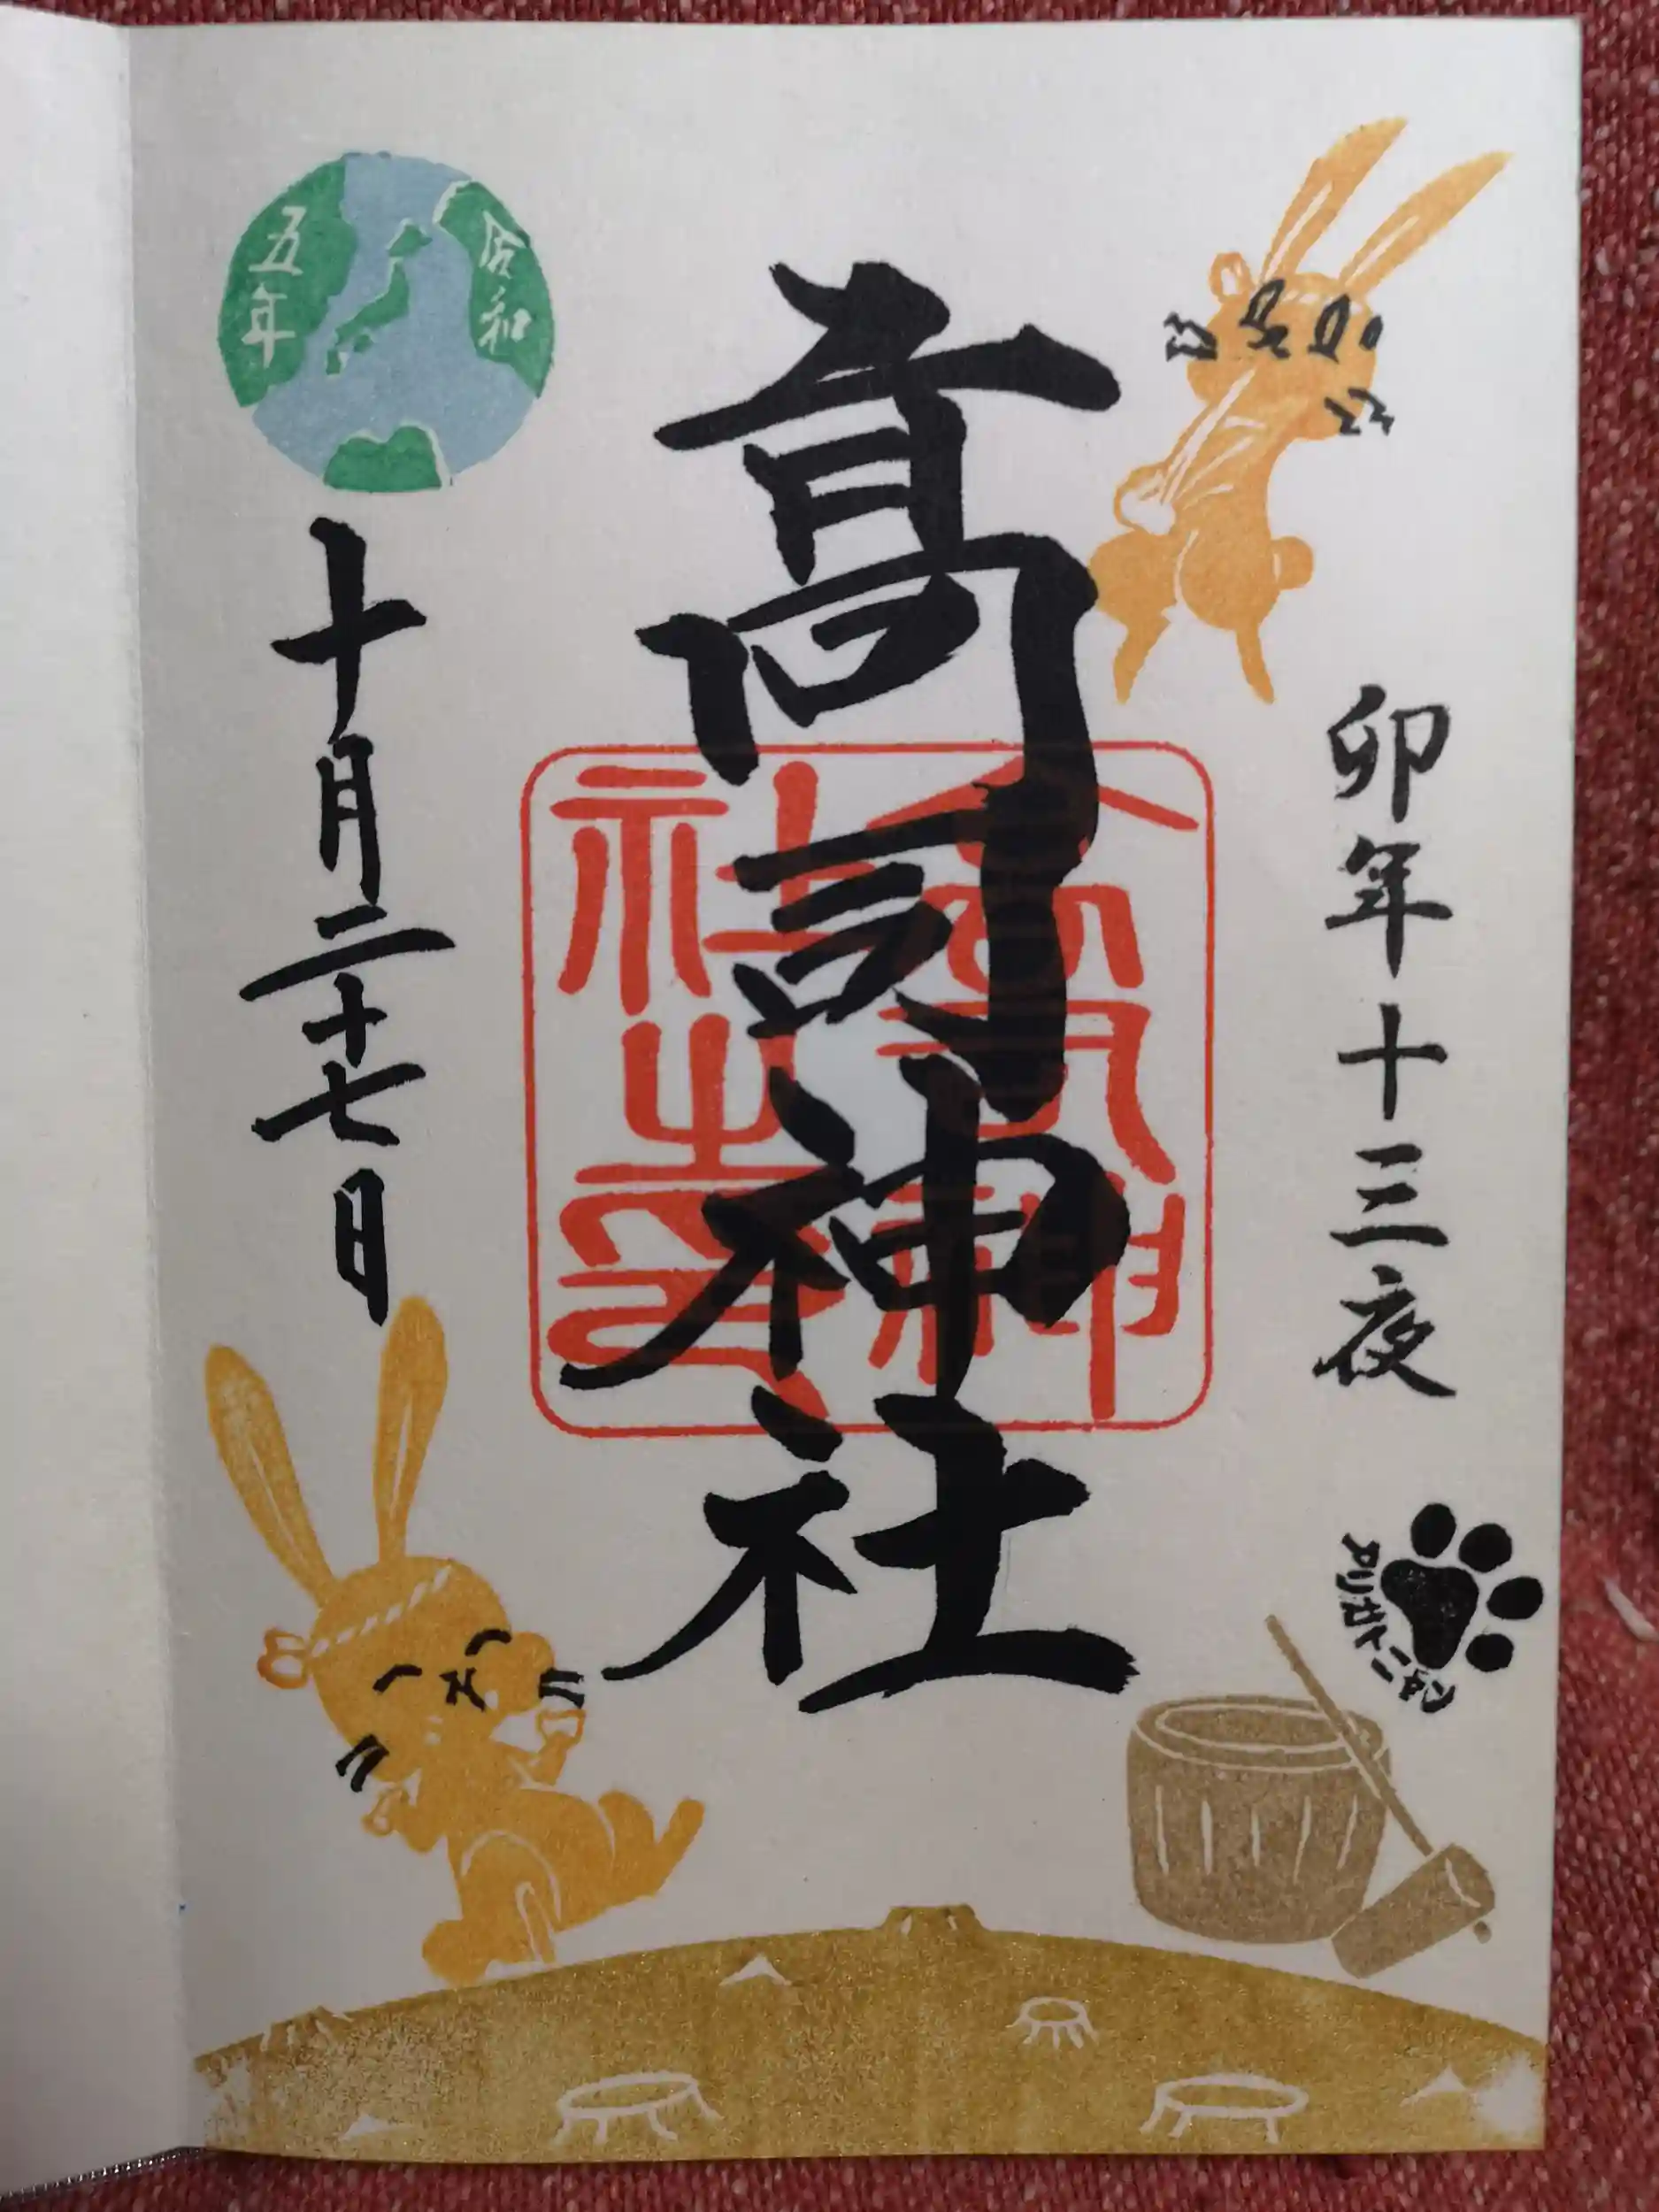 卯年十三夜
アリガトニャン
高司神社
高司神社之印
令和
五年
十月二十七日